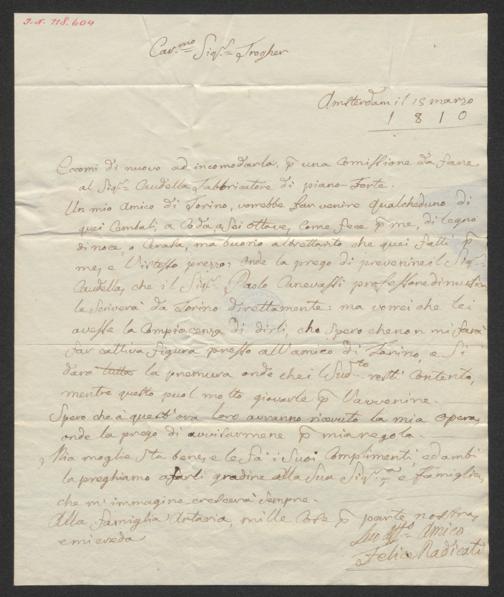 I.N. 118.604
Car.mo Sig.r Trogher
Amsterdam il 15 marzo
1810
Eccomi di nuovo ad incomodarla p una Comissione da fare
al Sig.r Caudella Fabbricatore di piano-Forte.
Un mio Amico di Torino, vorebbe far venire qualcheduno di
quei Cembali, a Coda, a Sei ottave, come fece p me, di legno
di noce, o Cerasa, ma buono altrettanto che quei fatti p
me, e l'istesso prezzo; onde la prego di prevenire il Sig.r
Caudella, che il Sig.r Paolo Canevassi professore di musica
le scriverà da Torino direttamente: ma vorrei che lei
avesse la Compiacenza di dirli, che spero che non mi farà
far cattiva figura presso all'amico di Torino, e Si
darà tutta la premura onde che il Sud.to resti Contento,
mentre questo può molto giovarle p l'avvenire.
Spero che a quest'ora loro avranno ricevuto la mia opera,
onde la prego di avvisarmene p mia regola.
Mia moglie Sta bene, e le fa i Suoi Complimenti, ed ambi
la preghiamo a farli gradire alla Sua Sig.ra e Famiglia,
che m'immagino crescerà Sempre.
Alla famiglia mille Cose p parte nostra,
e mi creda
Suo aff.o Amico
Felice Radicati